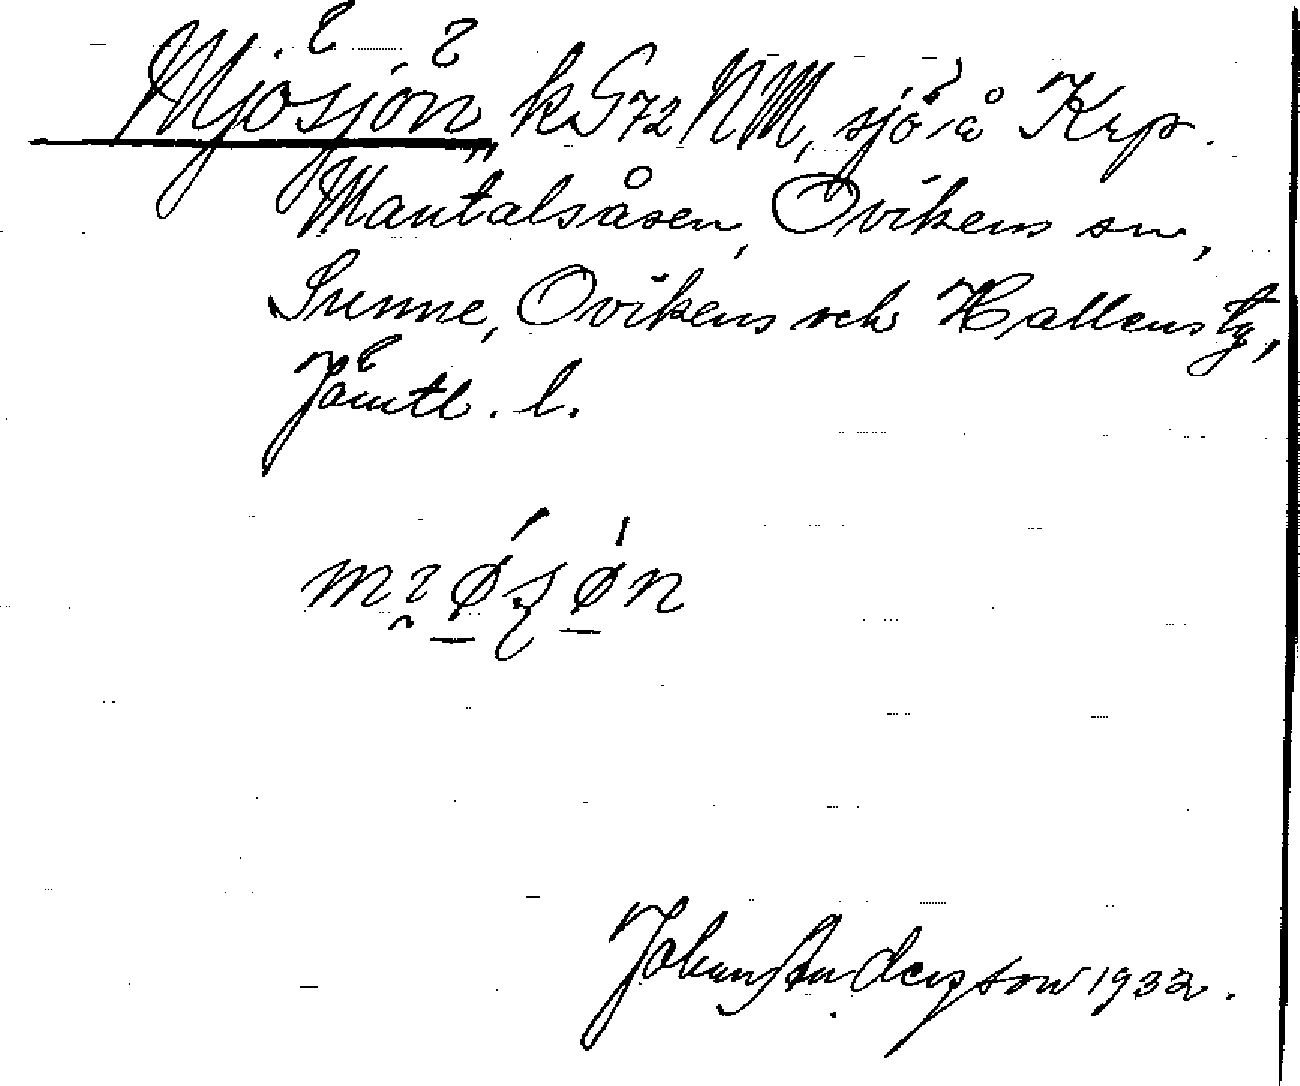 Mjösjön, k. G72 NM, sjö å Krp.
Mantalsåsen, Ovikens sn,
Sunne, Ovikens och Hallens tg,
Jämtl. l.
Johan Anderzson 1932.